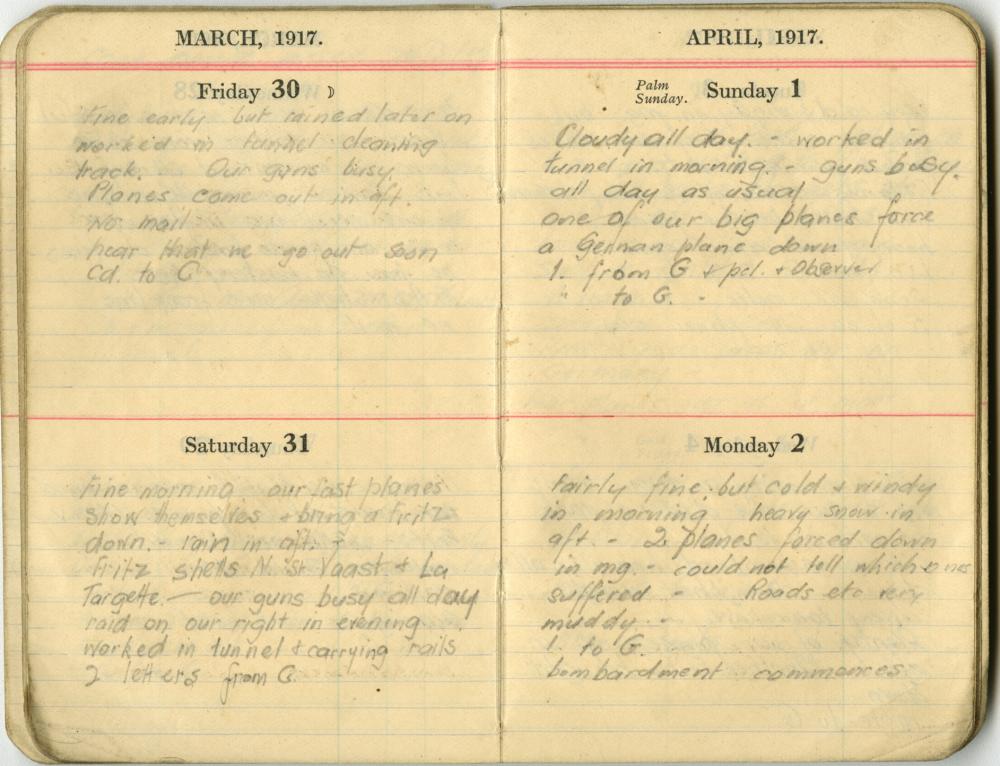 MARCH, 1917.
Friday 30 ☽
Fine early but rained later on
worked in tunnel cleaning
track. Our guns busy.
Planes come out in aft.
No mail
hear that we go out soon
Cd. to G
Saturday 31
Fine morning our fast planes
show themselves + bring a Fritz
down. - rain in aft. -
Fritz shells N. St Vaast + La
Targette. — our guns busy all day
raid on our right in evening
worked in tunnel + carrying rails
2 letters from G.
APRIL, 1917.
Palm
Sunday. Sunday 1
Cloudy all day. - worked in
tunnel in morning. - guns busy.
all day as usual
one of our big planes force
a German plane down
1. from G + pcl. + Observer
" to G. -
Monday 2
Fairly fine but cold + windy
in morning heavy snow in
aft. - 2 planes forced down
in mg. - could not tell which ones
suffered - Roads etc very
muddy. -
1. to G.
bombardment commences.